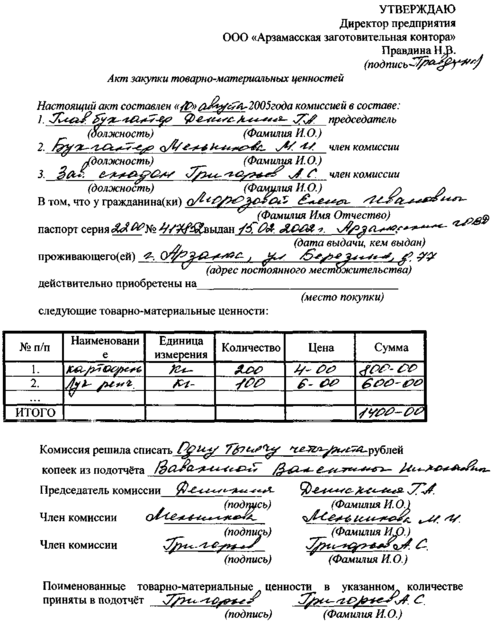 УТВЕРЖДАЮ
Директор предприятия
ООО «Арзамасская заготовительная контора»
Правдина Н.В.
(подпись Правдина)
Акт закупки товарно-материальных ценностей
Настоящий акт составлен «10» августа 2005года комиссией в составе:
1. Глав. бухгалтер Денискина Г.А. председатель
(должность) (Фамилия И.О.)
2. Бухгалтер Мельникова М.И. член комиссии
(должность) (Фамилия И.О.)
3. Зав. складом Григорьев А.С. член комиссии
(должность) (Фамилия И.О.)
В том, что у гражданина(ки) Морозовой Елены Ивановны
(Фамилия Имя Отчество)
паспорт серия 2200 № 417852 выдан 15.02.2002г. Арзамасским ГОВД
(дата выдачи, кем выдан)
проживающего(ей) г. Арзамас, ул Березина, д. 77
(адрес постоянного местожительства)
действительно приобретены на
(место покупки)
следующие товарно-материальные ценности:
№ п/п Наименовани Единица Количество Цена Сумма
е измерения
1. картофель кг 200 4-00 800-00
2. Лук репч. кг 100 6-00 600-00
...
ИТОГО 1400-00
Комиссия решила списать Одну тысячу четыреста рублей
копеек из подотчёта Валентины Николаевны
Председатель комиссии Денискина Денискина Г.А.
(подпись) (Фамилия И.О.)
Член комиссии Мельникова Мельникова М.И.
(подпись) (Фамилия И.О.)
Член комиссии Григорьев Григорьев А.С.
(подпись) (Фамилия И.О.)
Поименованные товарно-материальные ценности в указанном количестве
приняты в подотчёт Григорьев Григорьев А.С.
(подпись) (Фамилия И.О.)